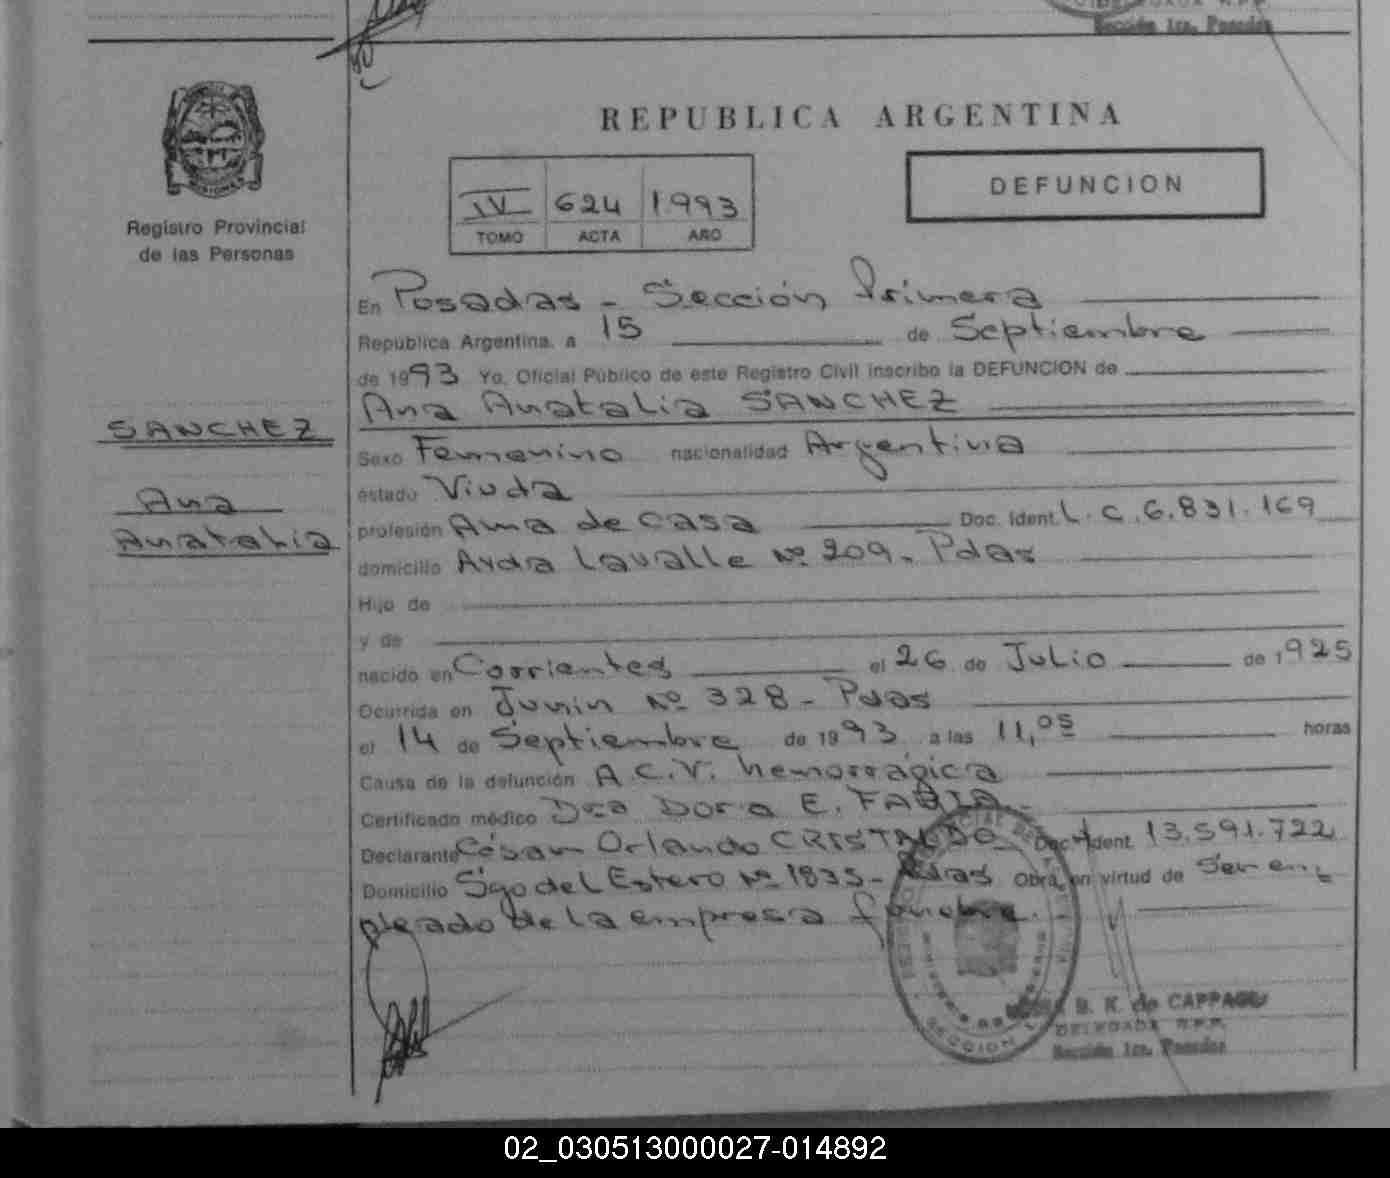 Sección 1ra. Posadas
REPUBLICA ARGENTINA
DEFUNCION
IV 624 1993
TOMO ACTA AÑO
MISIONES
Registro Provincial
de las Personas
En Posadas - Sección Primera
República Argentina, a 15 de Septiembre
de 1993 Yo, Oficial Público de este Registro Civil inscribo la DEFUNCION de
Ana Anatalia SANCHEZ
SANCHEZ
Ana
Anatalia
Sexo Femenino nacionalidad Argentina
estado Viuda
profesión Ama de casa Doc. Ident. L.C. 6.831.169
domicilio Avda Lavalle Nº 209 - Pdas
Hijo de
y de
nacido en Corrientes el 26 de Julio de 1925
Ocurrida en Junin Nº 328 - Pdas
el 14 de Septiembre de 1993 a las 11,05 horas
Causa de la defunción A.C.V. hemorrágica
Certificado médico Dra Dora E. FABIA
Declarante César Orlando CRISTALDO Doc. Ident. 13.591.722
Domicilio Sgo del Estero Nº 1835 - Pdas Obra en virtud de Ser em-
pleado de la empresa fúnebre.
B. K. de CAPPAGLI
DELEGADA R.P.P.
Sección 1ra. Posadas
02_030513000027-014892